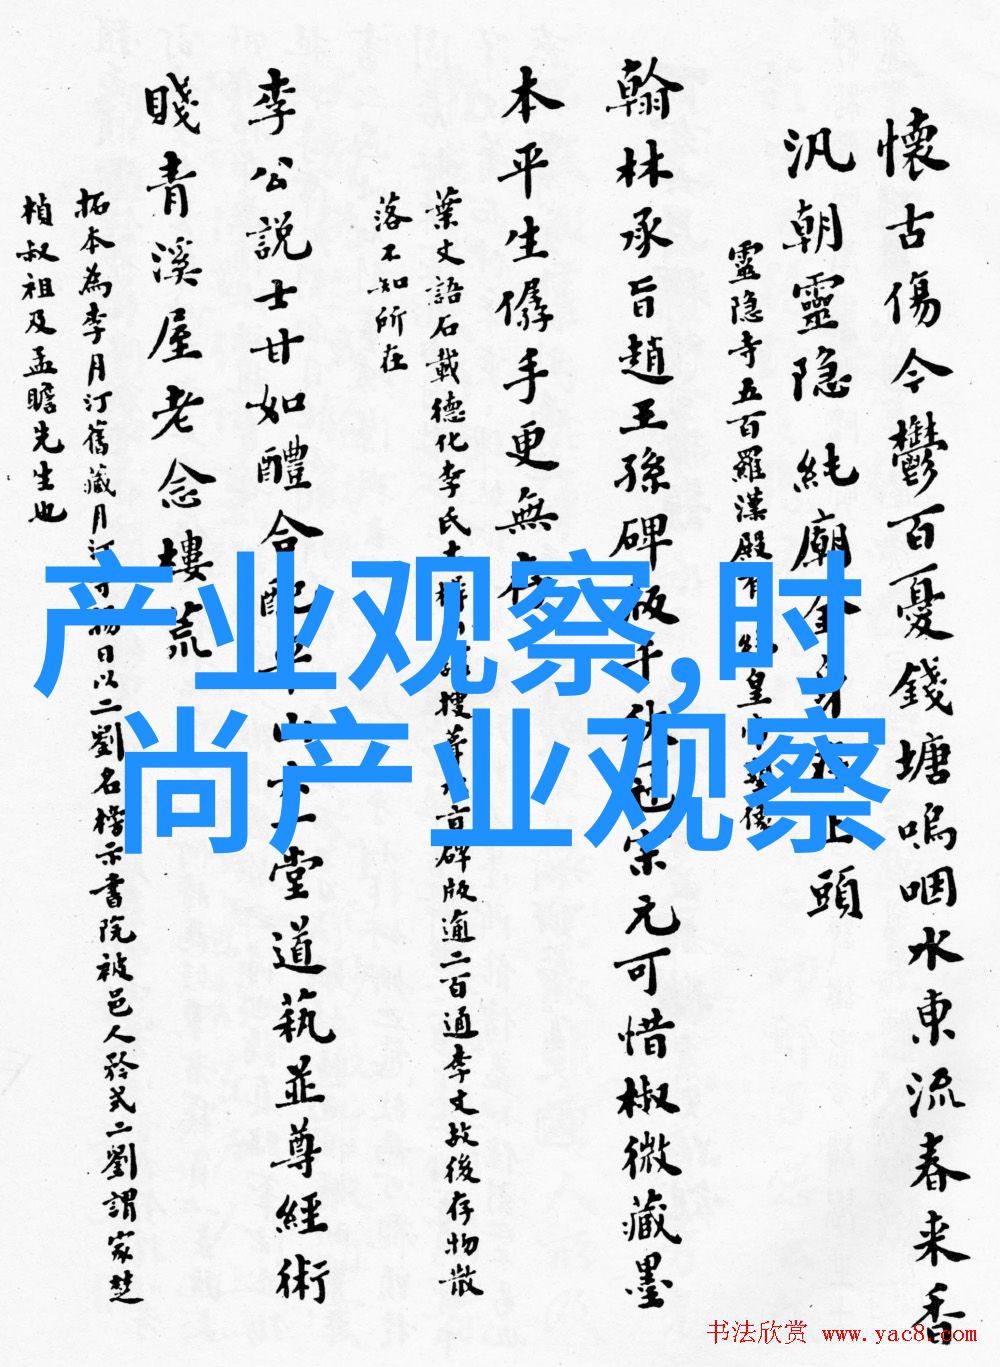 懷古傷今鬱百憂錢塘嗚咽水東流春来香
汎朝靈隐純廟金身
頭
靈隐寺五百羅漢殿有
皇
翰林承旨趙王孫碑版千秋
宋元可惜椒微藏墨
本平生儔手更無
葉文語石載德化李氏
搜羣
碑版逾二百通李文故後存物散
落不知所在
李公説士甘如醴合配
一堂道蓺並尊經術
賤青溪屋老念樓荒
拓本為李月汀舊藏月汀
日以二劉名榜示書院被邑人矜式二劉謂家楚
楨叔祖及孟瞻先生也
产业观察,时
尚产业观察
书法欣赏 www.yac8.com